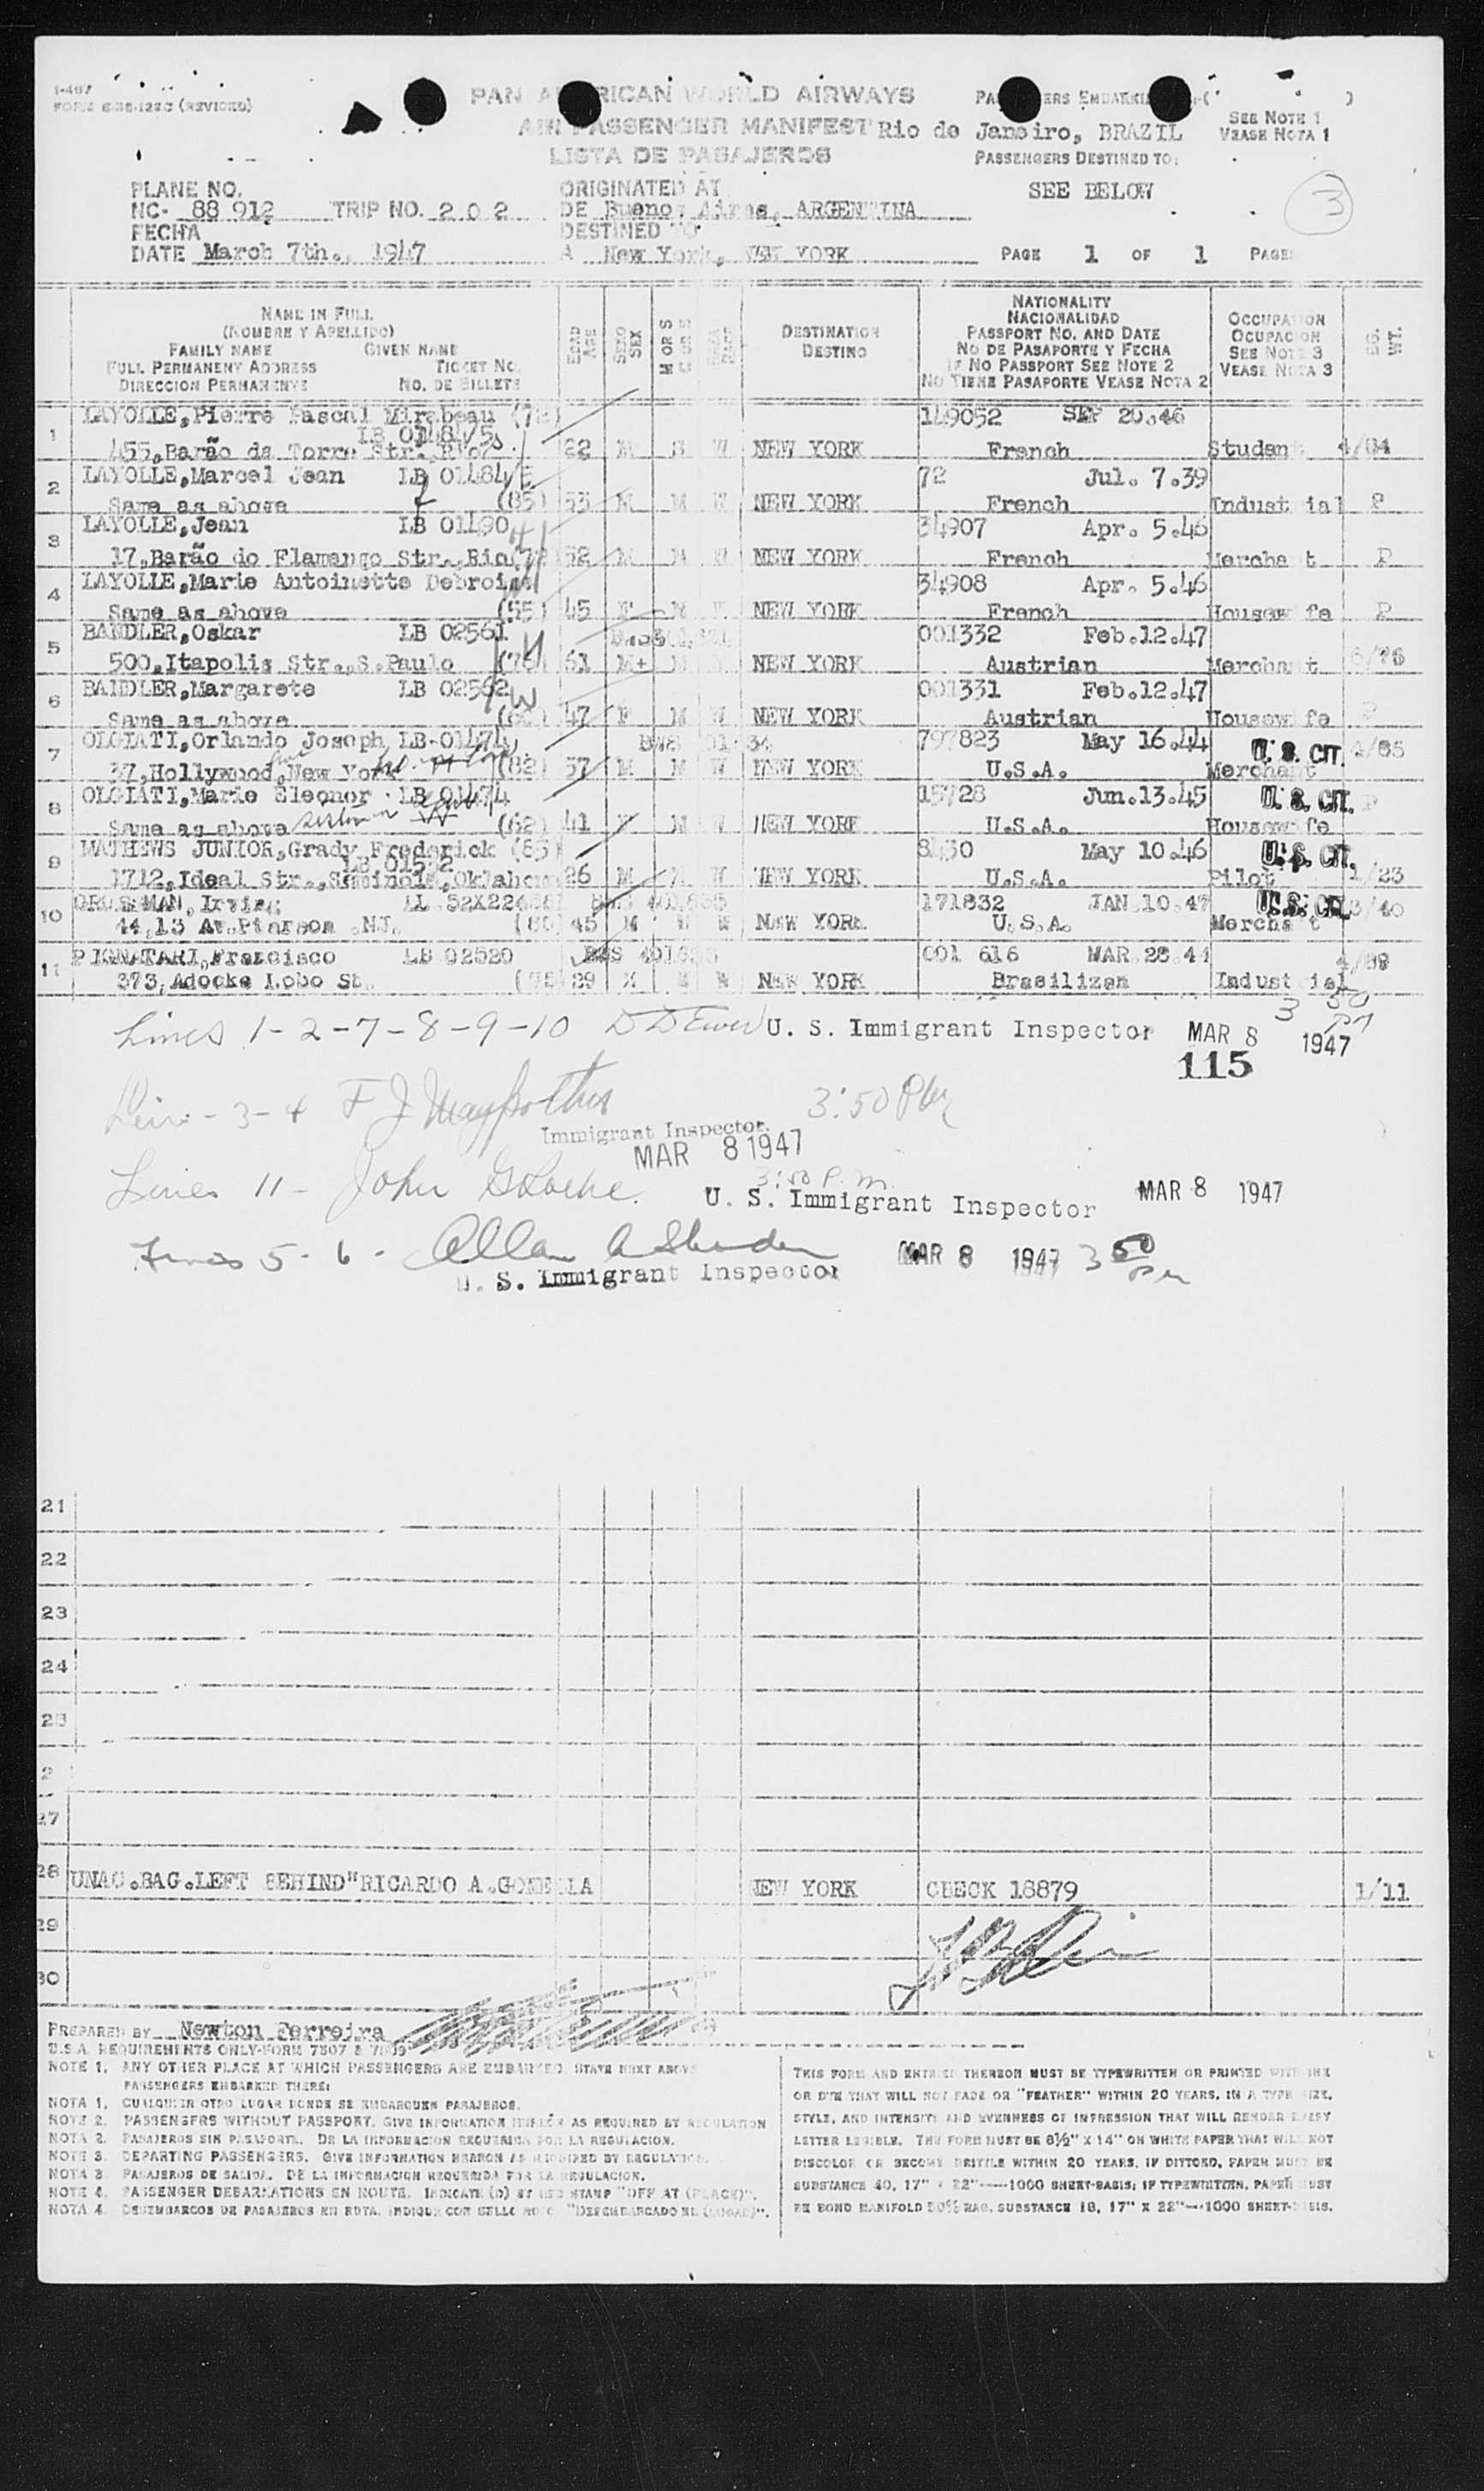 I-407
FORM (REVISED)
PAN AMERICAN WORLD AIRWAYS
AIR PASSENGER MANIFEST
LISTA DE PASAJEROS
Rio de Janeiro, BRAZIL
SEE NOTE 1
VEASE NOTA 1
PASSENGERS DESTINED TO:
SEE BELOW
3
PLANE NO.
NC- 88 912 TRIP NO. 2 0 2
FECHA
DATE March 7th., 1947
ORIGINATED AT
DE Buenos Aires, ARGENTINA
DESTINED TO
A New York, NEW YORK
PAGE 1 OF 1 PAGES
NAME IN FULL
(NOMBRE Y APELLIDO)
FAMILY NAME GIVEN NAME
FULL PERMANENT ADDRESS TICKET NO.
DIRECCION PERMANENTE NO. DE BILLETE
EDAD
AGE
SEXO
SEX
M OR S
C OR S
DESTINATION
DESTINO
NATIONALITY
NACIONALIDAD
PASSPORT NO. AND DATE
NO DE PASAPORTE Y FECHA
IF NO PASSPORT SEE NOTE 2
NO TIENE PASAPORTE VEASE NOTA 2
OCCUPATION
OCUPACION
SEE NOTE 3
VEASE NOTA 3
WT.
1 LAYOLLE,Pierre Pascal Mirabeau (72) 149052 SEP 20.46
LB 01484/5
455,Barão da Torre Str. Rio 22 M S W NEW YORK French Student 4/84
2 LAYOLLE,Marcel Jean LB 01484/5 72 Jul. 7.39
Same as above (85) 53 M M W NEW YORK French Industrial P
3 LAYOLLE,Jean LB 01490 34907 Apr. 5.46
17,Barão do Flamengo Str.,Rio 52 M M W NEW YORK French Merchant P
4 LAYOLLE,Marie Antoinette 34908 Apr. 5.46
Same as above (55) 45 F M W NEW YORK French Housewife P
5 BANDLER,Oskar LB 02561 001332 Feb.12.47
500,Itapolis Str.,S.Paulo (76) 61 M NEW YORK Austrian Merchant 6/76
6 BANDLER,Margarete LB 02562 001331 Feb.12.47
Same as above 47 F M W NEW YORK Austrian Housewife
7 OLGIATI,Orlando Joseph LB-01474 797823 May 16.44 U. S. CIT.
37,Hollywood,New York (82) 57 M M W NEW YORK U.S.A. Merchant
8 OLGIATI,Marie Eleonor LB 01474 15728 Jun.13.45 U. S. CIT. P
Same as above (62) 41 F M W NEW YORK U.S.A. Housewife
9 MATHEWS JUNIOR,Grady Frederick (85) 8430 May 10.46 U. S. CIT.
1712,Ideal Str.,Seminole,Oklahoma 26 M W NEW YORK U.S.A. Pilot 1/23
10 GROSSMAN, Irving 171832 JAN.10.47 U. S. CIT. 3/40
44,13 Av.Pterson .NJ. (80) 45 M W NEW YORK U.S.A. Merchant
11 PIGNATARI,Francisco LB 02520 001 616 MAR.28.44 4/89
373,Adocke Lobo St. (75) 29 W NEW YORK Brasilizen Industrial
Lines 1-2-7-8-9-10 U. S. Immigrant Inspector MAR 8 1947 3 50 PM
115
3-4 F J 3:50 PM
Immigrant Inspector.
MAR 8 1947
Lines 11- John 3:50 P.m.
U. S. Immigrant Inspector MAR 8 1947
Lines 5-6- Allan MAR 8 1947 3 50 PM
U. S. Immigrant Inspector
21
22
23
24
25
2
27
28 UNAC.BAG.LEFT BEHIND"RICARDO A.GONELLA NEW YORK CHECK 18879 1/11
29
30
PREPARED BY Newton Ferreira
U.S.A. REQUIREMENTS ONLY-FORM 7507 & 7509
NOTE 1. ANY OTHER PLACE AT WHICH PASSENGERS ARE EMBARKED, STATE NEXT ABOVE
PASSENGERS EMBARKED THERE:
NOTA 1. CUALQUIER OTRO LUGAR DONDE SE EMBARQUEN PASAJEROS.
NOTE 2. PASSENGERS WITHOUT PASSPORT, GIVE INFORMATION HEREON AS REQUIRED BY REGULATION
NOTA 2. PASAJEROS SIN PASAPORTE. DE LA INFORMACION REQUERIDA POR LA REGULACION.
NOTE 3. DEPARTING PASSENGERS. GIVE INFORMATION HEREON AS REQUIRED BY REGULATION.
NOTA 3. PASAJEROS DE SALIDA. DE LA INFORMACION REQUERIDA POR LA REGULACION.
NOTE 4. PASSENGER DEBARKATIONS EN ROUTE. INDICATE (D) BY USE STAMP "OFF AT (PLACE)".
NOTA 4. DESEMBARCOS DE PASAJEROS EN RUTA. INDIQUE CON SELLO ROJO "DESEMBARCADO EN (LUGAR)".
THIS FORM AND ENTRIES THEREON MUST BE TYPEWRITTEN OR PRINTED WITH INK
OR DYE THAT WILL NOT FADE OR "FEATHER" WITHIN 20 YEARS, IN A TYPE SIZE,
STYLE, AND INTENSITY AND EVENNESS OF IMPRESSION THAT WILL RENDER EVERY
LETTER LEGIBLE. THE FORM MUST BE 8½" X 14" ON WHITE PAPER THAT WILL NOT
DISCOLOR OR BECOME BRITTLE WITHIN 20 YEARS. IF DITTOED, PAPER MUST BE
SUBSTANCE 40, 17" X 22"----1000 SHEET-BASIS; IF TYPEWRITTEN, PAPER MUST
BE BOND MANIFOLD 50% RAG, SUBSTANCE 18, 17" X 22"---1000 SHEET-BASIS.